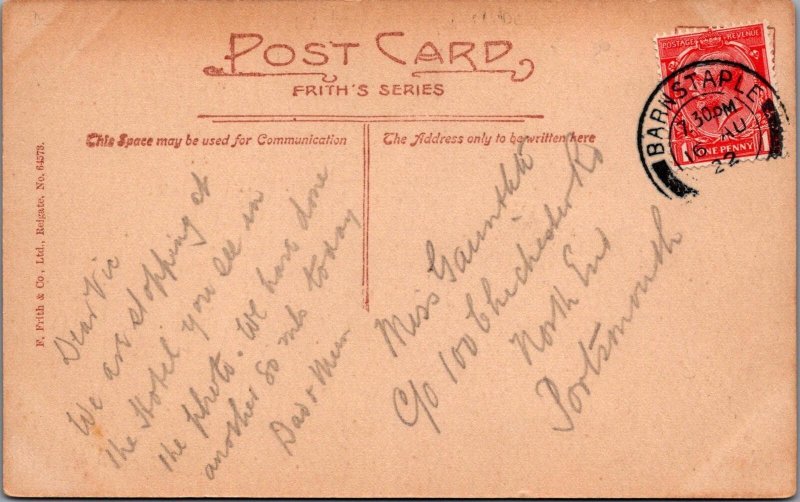 POST CARD
FRITH'S SERIES
This Space may be used for Communication
The Address only to be written here
F. Frith & Co., Ltd., Reigate. No. 64573.
POSTAGE REVENUE
ONE PENNY
BARNSTAPLE
7.30PM
16 AU
22
Dear Vic
We are stopping at
the Hotel you see in
the photo. We have done
another 80 mls today
Dad & Mum
Miss Gaunthh
C/o 100 Chichester Rd
North End
Portsmouth